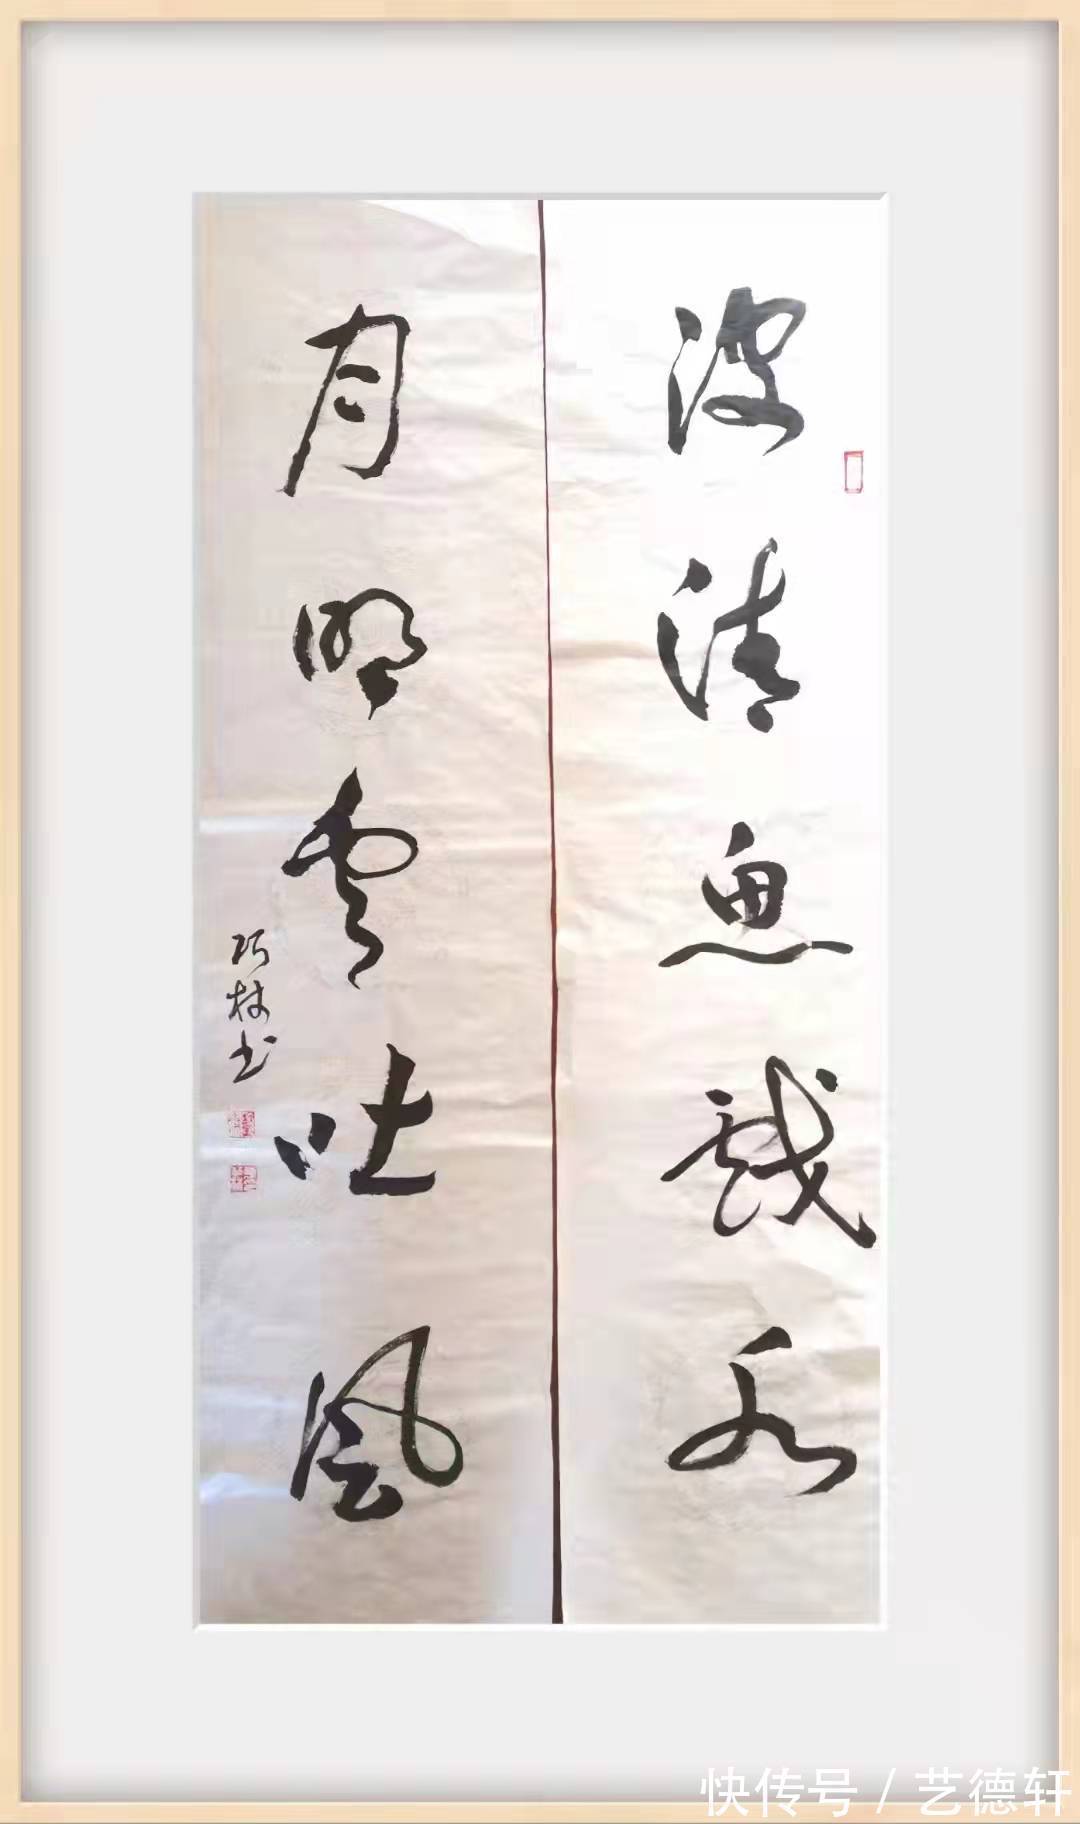 波清鱼戏水
月明云吐风
巧林书
快传号 / 艺德轩